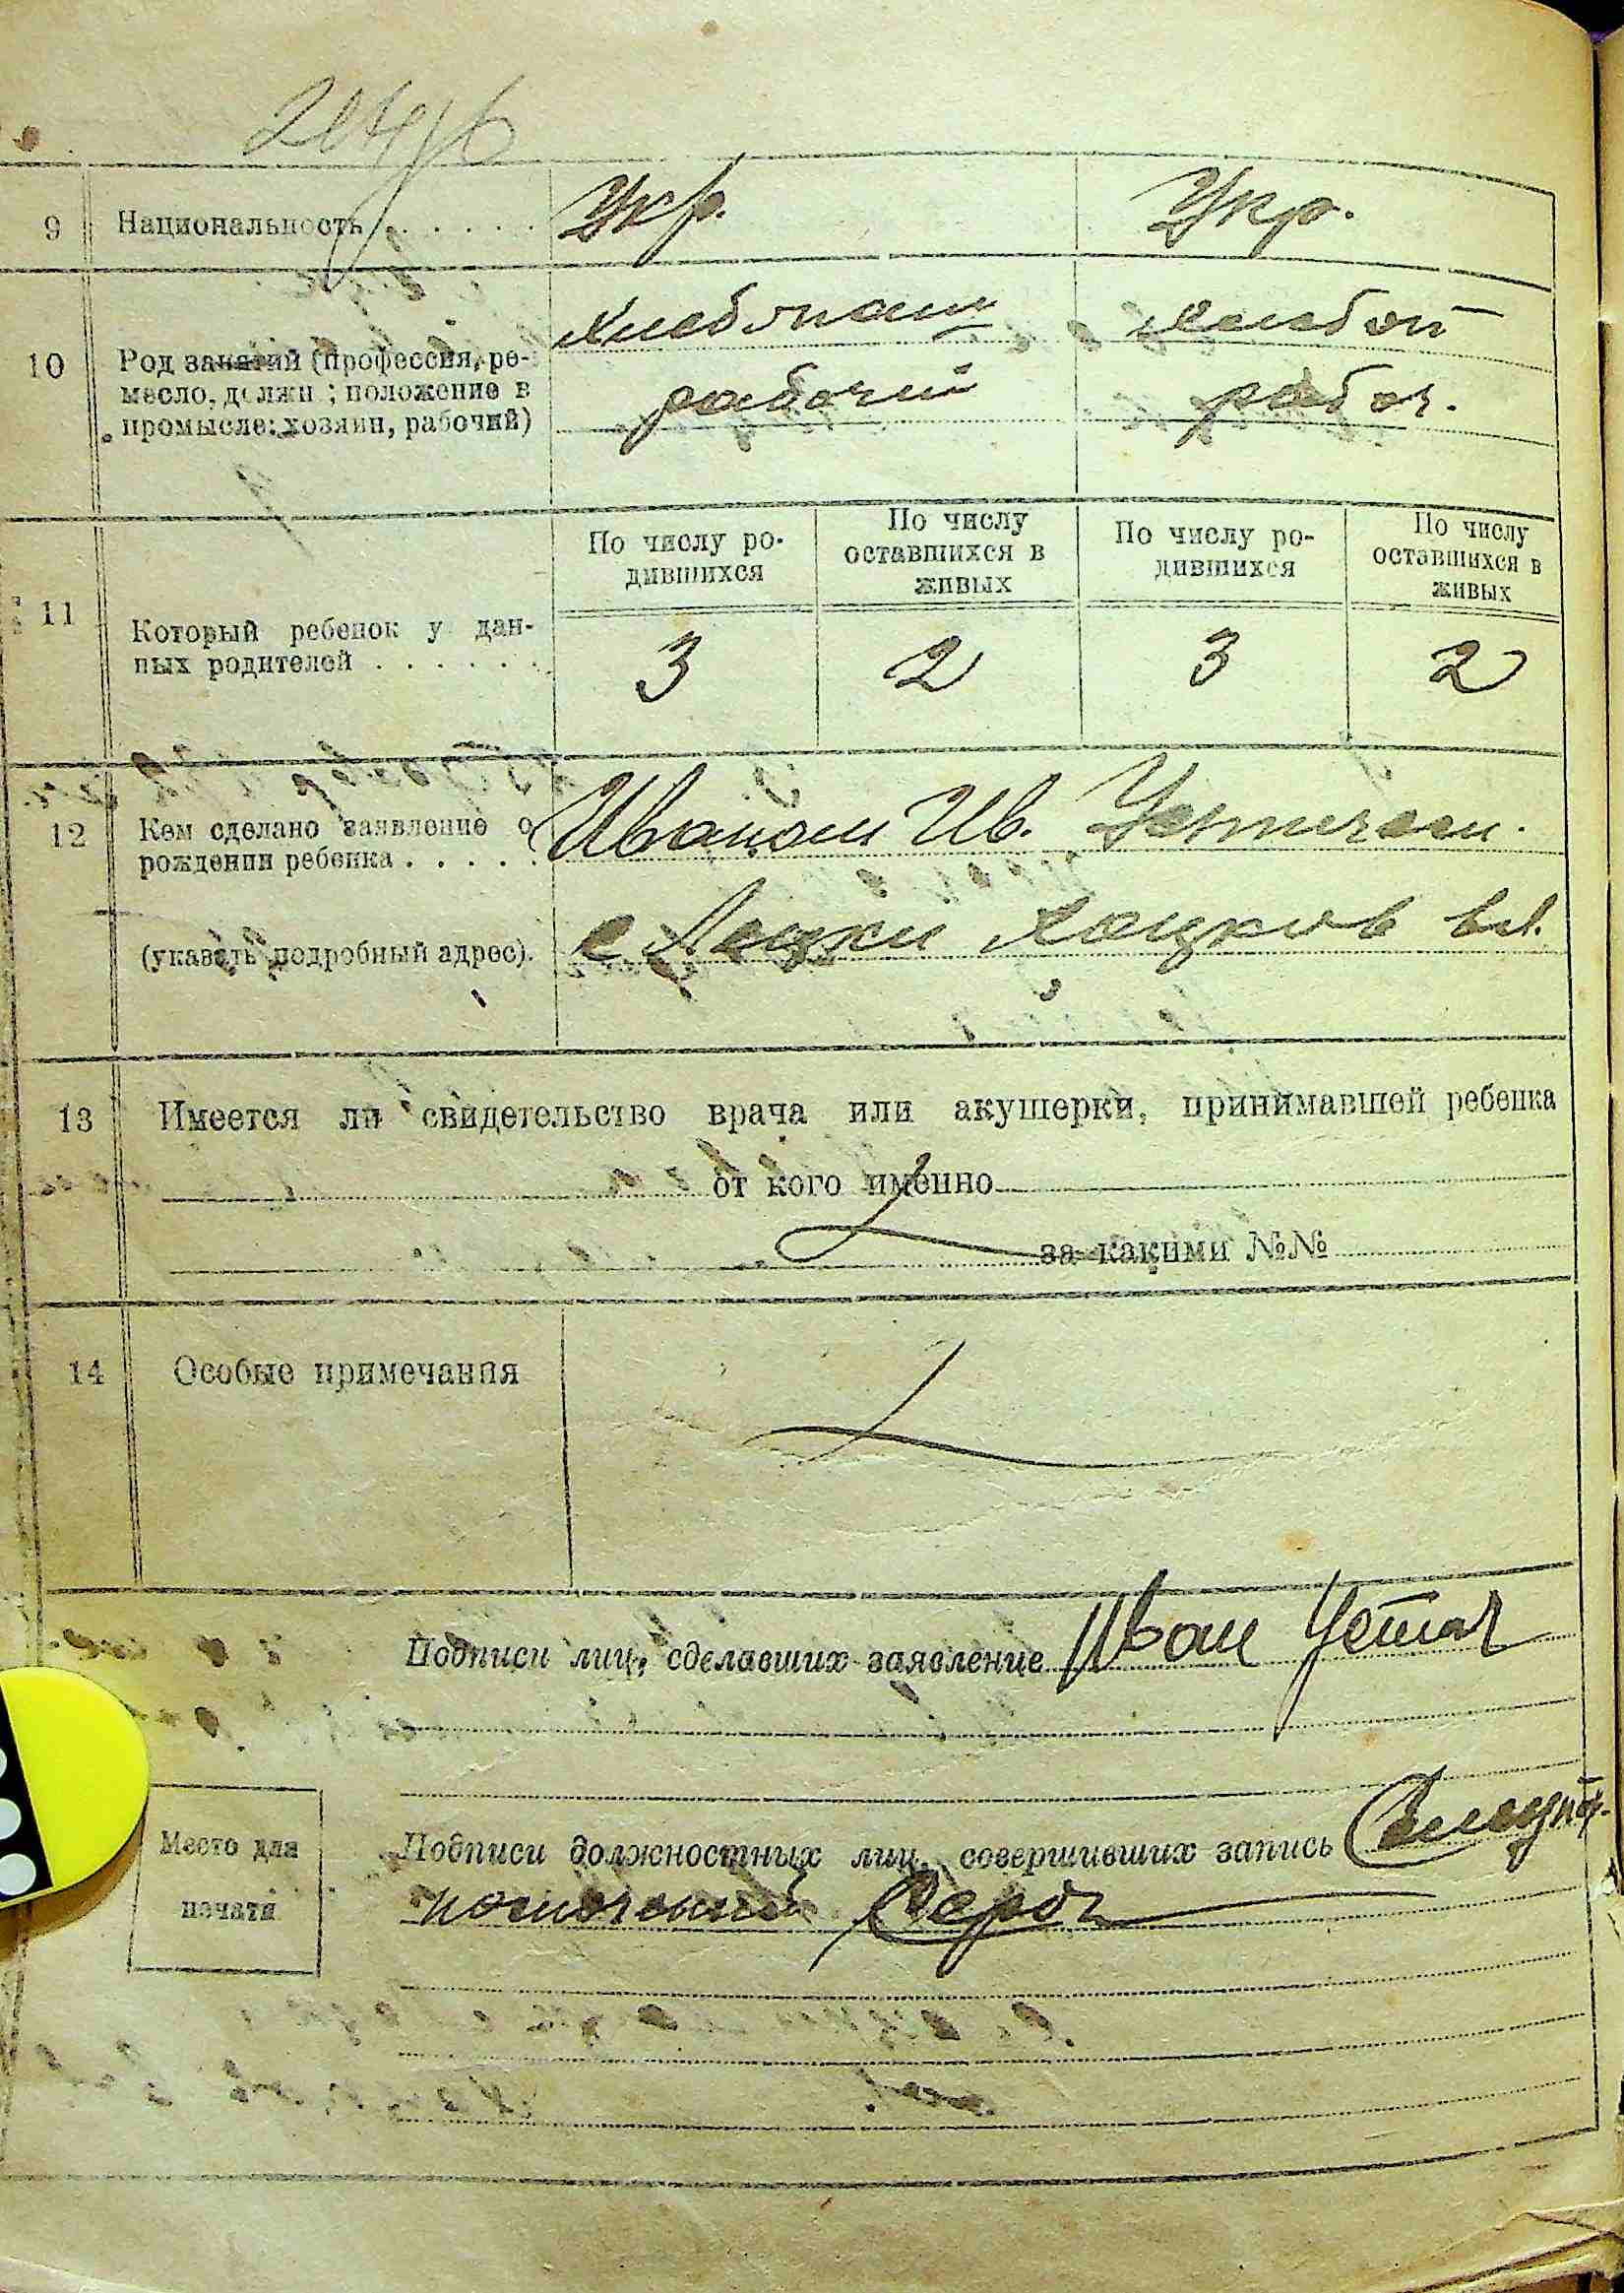 9 Национальность . . . . . . Укр. Укр.
10 Род занятий (профессия, ре-
месло, должн ; положение в
промысле: хозяин, рабочий)
рабочий рабоч.
По числу ро-
дившихся
По числу
оставшихся в
живых
По числу ро-
дившихся
По числу
оставшихся в
живых
11 Который ребенок у дан-
ных родителей . . . . . . .
3 2 3 2
12 Кем сделано заявление о
рождении ребенка . . . . .
Иваном Ив.
(указать подробный адрес).
с Лацки вл.
13 Имеется ли свидетельство врача или акушерки, принимавшей ребенка
от кого именно
за какими №№
14 Особые примечания
Подписи лиц, сделавших заявление Иван
Место для
печати
Подписи должностных лиц, совершивших запись